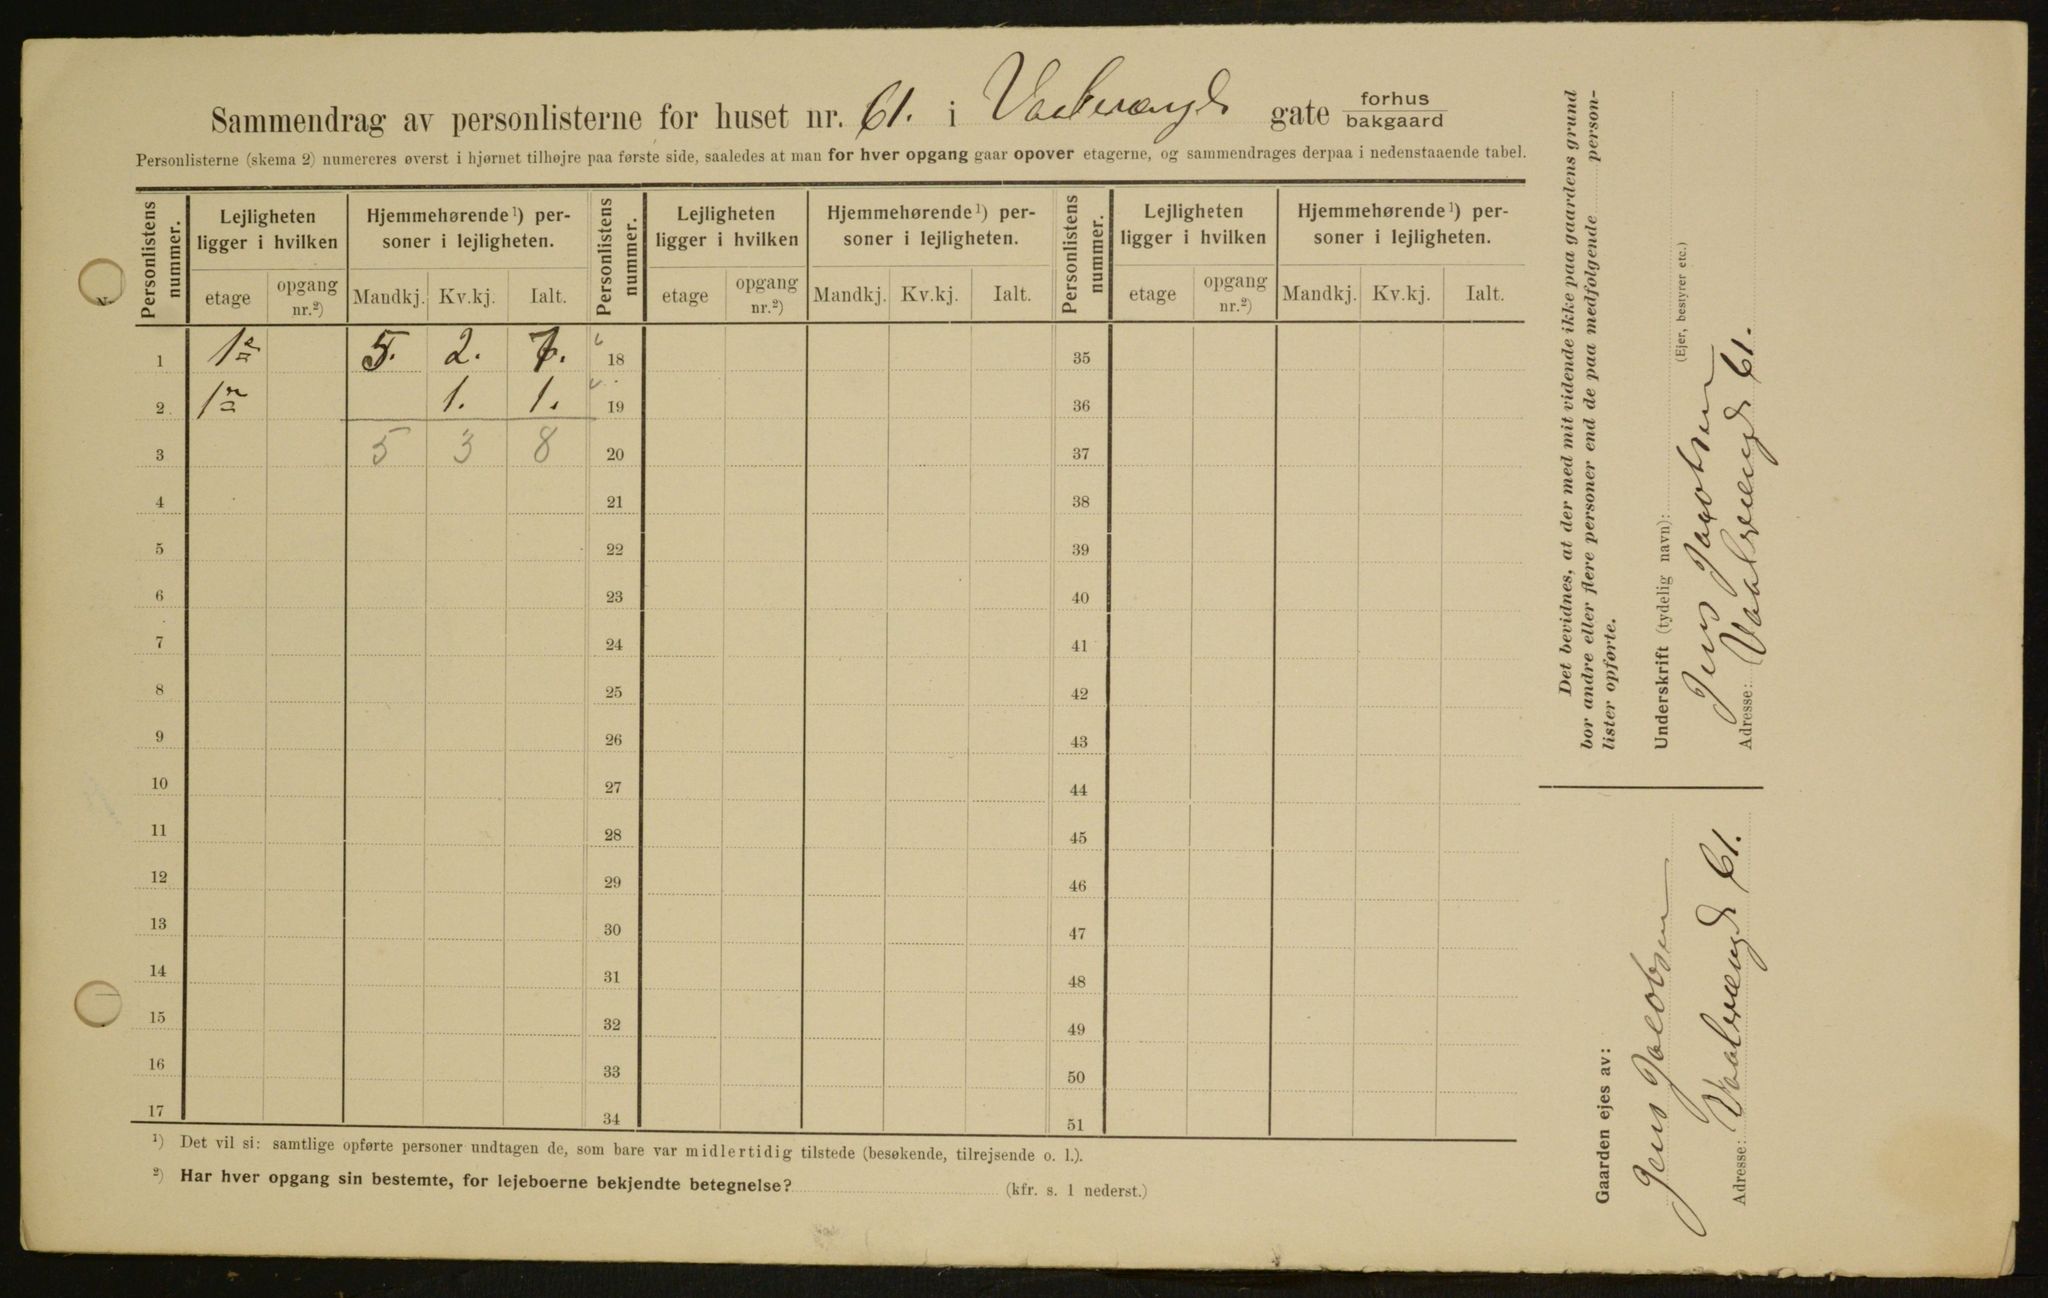 Sammendrag av personlisterne for huset nr. 61. i Vaalerengd gate forhus bakgaard
Personlisterne (skema 2) numereres øverst i hjørnet tilhøjre paa første side, saaledes at man for hver opgang gaar opover etagerne, og sammendrages derpaa i nedenstaaende tabel.
Personlistens nummer. Lejligheten ligger i hvilken Hjemmehørende¹) personer i lejligheten. Personlistens nummer. Lejligheten ligger i hvilken Hjemmehørende¹) personer i lejligheten. Personlistens nummer. Lejligheten ligger i hvilken Hjemmehørende¹) personer i lejligheten.
etage opgang nr.²) Mandkj. Kv.kj. Ialt. etage opgang nr.²) Mandkj. Kv.kj. Ialt. etage opgang nr.²) Mandkj. Kv.kj. Ialt.
1 1e 5. 2. 7. 18 35
2 1n 1. 1. 19 36
3 5 3 8 20 37
4 21 38
5 22 39
6 23 40
7 24 41
8 25 42
9 26 43
10 27 44
11 28 45
12 29 46
13 30 47
14 31 48
15 32 49
16 33 50
17 34 51
¹) Det vil si: samtlige opførte personer undtagen de, som bare var midlertidig tilstede (besøkende, tilrejsende o. l.).
²) Har hver opgang sin bestemte, for lejeboerne bekjendte betegnelse? (kfr. s. 1 nederst.)
Det bevidnes, at der med mit vidende ikke paa gaardens grund
bor andre eller flere personer end de paa medfølgende person-
lister opførte.
Underskrift (tydelig navn):
Jens Jacobsen
(Ejer, bestyrer etc.)
Adresse: Vaalerengd 61.
Gaarden ejes av:
Jens Jacobsen
Adresse: Vaalerengd 61.